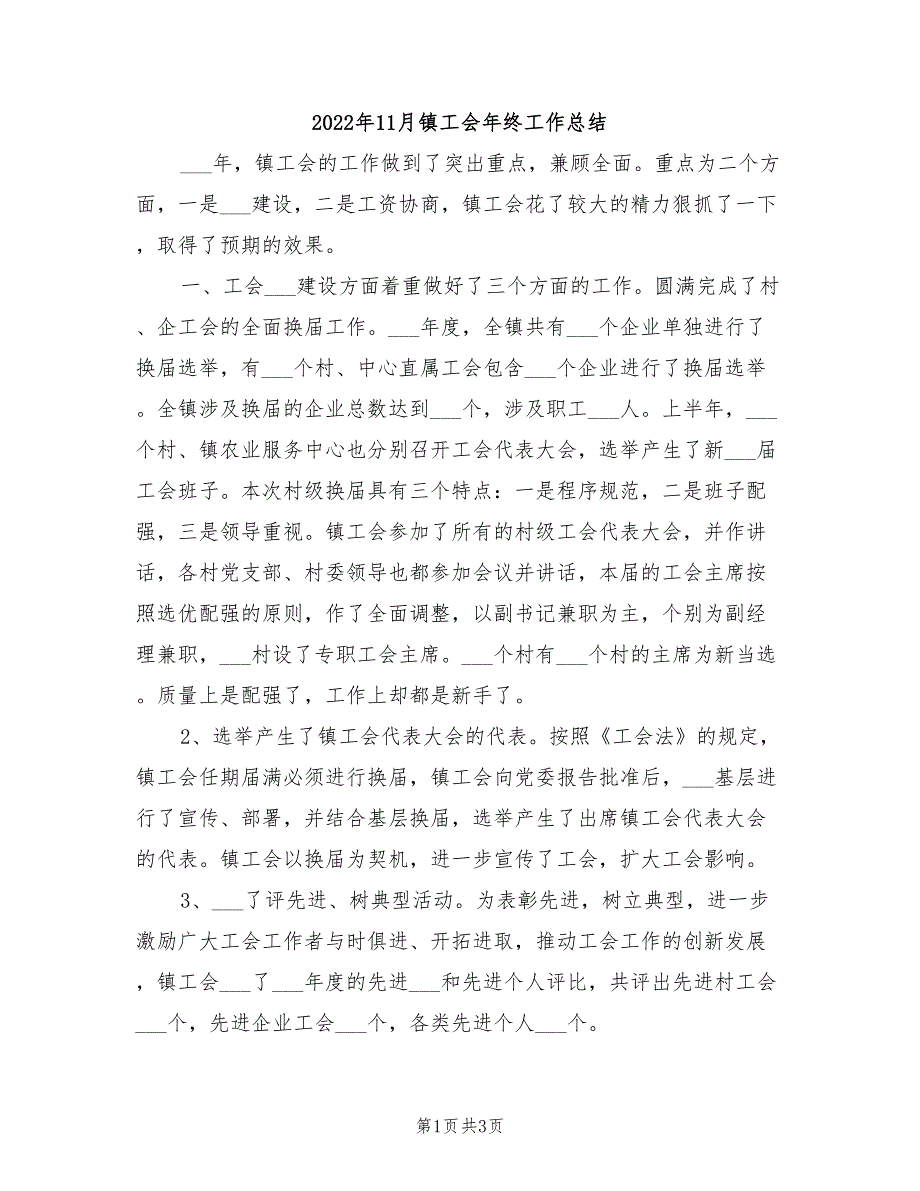 2022年11月镇工会年终工作总结
___年，镇工会的工作做到了突出重点，兼顾全面。重点为二个方
面，一是___建设，二是工资协商，镇工会花了较大的精力狠抓了一下
，取得了预期的效果。
一、工会___建设方面着重做好了三个方面的工作。圆满完成了村
、企工会的全面换届工作。___年度，全镇共有___个企业单独进行了
换届选举，有___个村、中心直属工会包含___个企业进行了换届选举
。全镇涉及换届的企业总数达到___个，涉及职工___人。上半年，___
个村、镇农业服务中心也分别召开工会代表大会，选举产生了新___届
工会班子。本次村级换届具有三个特点：一是程序规范，二是班子配
强，三是领导重视。镇工会参加了所有的村级工会代表大会，并作讲
话，各村党支部、村委领导也都参加会议并讲话，本届的工会主席按
照选优配强的原则，作了全面调整，以副书记兼职为主，个别为副经
理兼职，___村设了专职工会主席。___个村有___个村的主席为新当选
。质量上是配强了，工作上却都是新手了。
2、选举产生了镇工会代表大会的代表。按照《工会法》的规定，
镇工会任期届满必须进行换届，镇工会向党委报告批准后，___基层进
行了宣传、部署，并结合基层换届，选举产生了出席镇工会代表大会
的代表。镇工会以换届为契机，进一步宣传了工会，扩大工会影响。
3、___了评先进、树典型活动。为表彰先进，树立典型，进一步
激励广大工会工作者与时俱进、开拓进取，推动工会工作的创新发展
，镇工会___了___年度的先进___和先进个人评比，共评出先进村工会
___个，先进企业工会___个，各类先进个人___个。
第1页 共3页